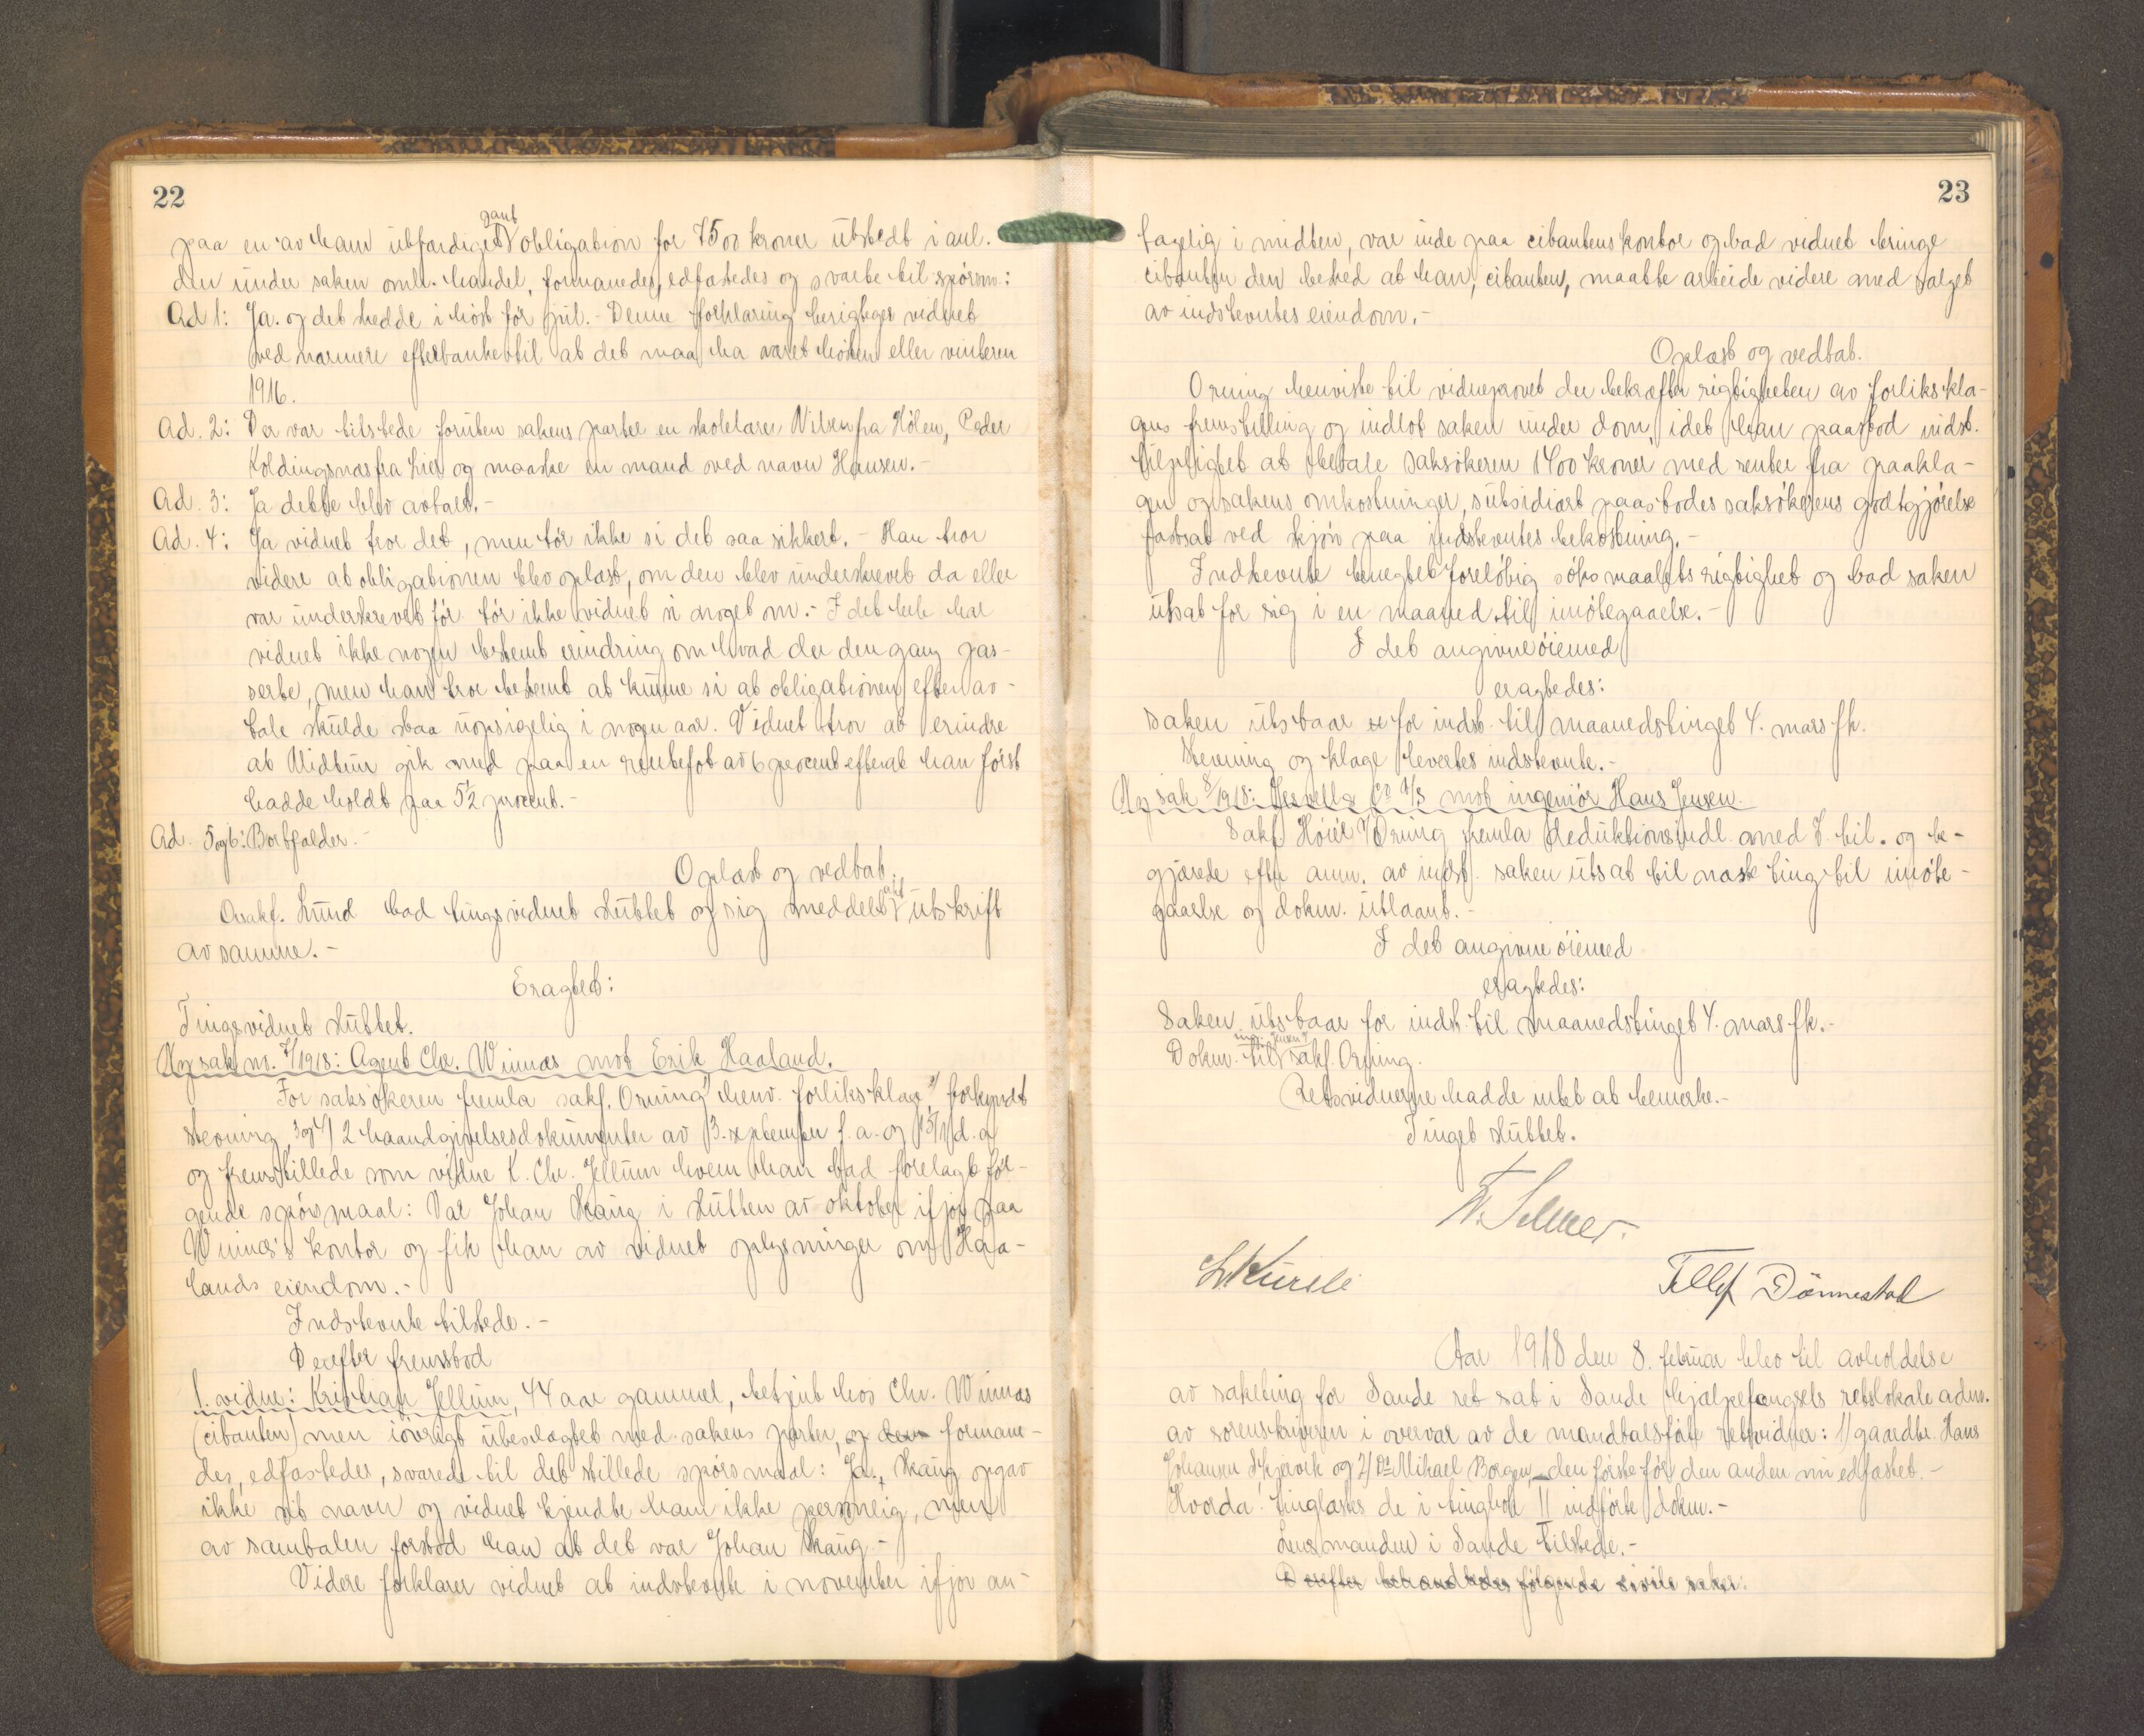 22
pant
paa en av ham utfærdiget obligation for 7500 kroner utstedt i anl.
den under saken omh. handel, formanedes, edfæstedes og svarte til spørsm:
Ad 1: Ja. og det skedde i høst før jul.- Denne forklaring berigtiges vidnet
ved nærmere eftertanke til at det maa ha været høsten eller vinteren
1916.
Ad. 2: Der var tilstede foruten sakens parter en skolelærer Nilsen fra Hølen, Peder
Koldingsnæs fra Lier og maaske en mand ved navn Hansen.-
Ad. 3: Ja dette blev avtalt.-
Ad. 4: Ja vidnet tror det, men tør ikke si det saa sikkert.- Han tror
videre at obligationen blev oplæst, om den blev underskrevet da eller
var underskrevet før tør ikke vidnet si noget om.- I det hele har
vidnet ikke nogen bestemt erindring om hvad der den gang pas-
serte, men han tror bestemt at kunne si at obligationen efter av-
tale skulde staa uopsigelig i nogen aar. Vidnet tror at erindre
at Midtun gik med paa en rentefot av 6 procent efterat han først
hadde holdt paa 5½ procent.-
Ad. 5 og 6: Bortfalder.-
Oplæst og vedtat.
Ovsakf. Lund bad tingsvidnet sluttet og sig meddelt utskrift
av samme.-
Eragtet:
Tingsvidnet sluttet.
Ny sak no. 7/1918: Agent Chr. Winnæs mot Erik Haaland.
For saksøkeren fremla sakf. Orning 1) henv. forliksklage 2) forkyndt
stevning, 3 og 4) 2 haandgivelsesdokumenter av 13. september f.a. og 15/1 d.a
og fremstillede som vidne K. Chr. Jellum hvem han bad forelagt føl-
gende spørsmaal: Var Johan Skaug i slutten av oktober ifjor paa
Winnæs's kontor og fik han av vidnet oplysninger om Haa-
lands eiendom.-
Indstevnte tilstede.-
Derefter fremstod
1. vidne: Kristian Jellum, 44 aar gammel, betjent hos Chr. Winnæs
(citanten) men iøvrigt ubeslægtet med sakens parter, og dem formane-
des, edfæstedes, svarede til det stillede spørsmaal: Ja, Skaug opgav
ikke sit navn og vidnet kjendte ham ikke personlig, men
av samtalen forstod han at det var Johan Skaug.-
Videre forklarer vidnet at indstevnte i november ifjor an-
23
tagelig i midten, var inde paa citantens kontor og bad vidnet bringe
citanten den besked at han, citanten, maatte arbeide videre med salget
av indstevntes eiendom.-
Oplæst og vedtat.
Orning henviste til vidneprovet der bekræfter rigtigheten av forlikskla-
gens fremstilling og indlot saken under dom, idet han paastod indst.
tilpligtet at betale saksøkeren 1400 kroner med renter fra paakla-
gen og sakens omkostninger, subsidiært paastodes saksøkerens godtgjørelse
fastsat ved skjøn paa indstevntes bekostning.-
Indstevnte benegtet foreløbig søksmaalets rigtighet og bad saken
utsat for sig i en maaned til imøtegaaelse.-
I det angivne øiemed
eragtedes:
Saken utstaar for indst. til maanedstinget 4. mars fk.
Stevning og klage levertes indstevnte.-
Ny sak 8/1918: & Co A/S mot ingeniør Hans Jensen.
Sakf. Høiel v/Orning fremla deduktionsindl. med bil. og be-
gjærede efter anm. av indst. saken utsat til næste ting til imøte-
gaaelse og dokm. utlaant.-
I det angivne øiemed
eragtedes:
Saken utstaar for indst. til maanedstinget 4. mars fk.-
ing. Jensen v
Dokm. til sakf. Orning.
Retsvidnerne hadde intet at bemerke.-
Tinget sluttet.
Tellef Dønnestad
Aar 1918 den 8. februar blev til avholdelse
av sakting for Sande ret sat i Sande hjælpefengsels retslokale adm.
av sorenskriveren i overvær av de mandtalsførte retsvidner: 1) gaardbr. Hans
Johansen Skjervik og 2) Do Mikael Borgen, den første før den anden nu edfæstet.-
Hvorda: tinglæstes de i tingbok 11 indførte dokm.-
Lensmanden i Sande tilstede.-
Derefter behandledes følgende sivile saker: